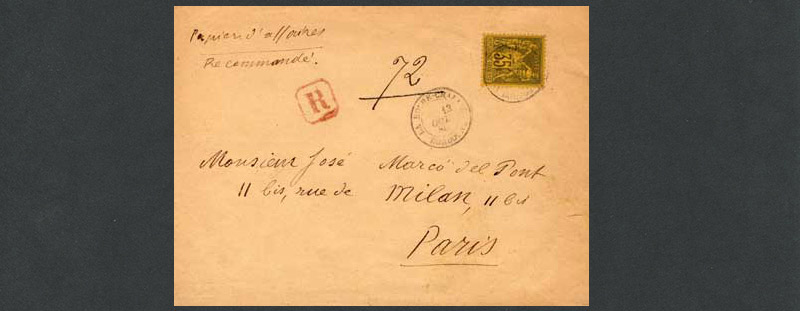 Papiers d'affaires
Recommandé.
72
35
R
Monsieur José Marcó del Pont
11 bis, rue de Milan, 11 bis
Paris